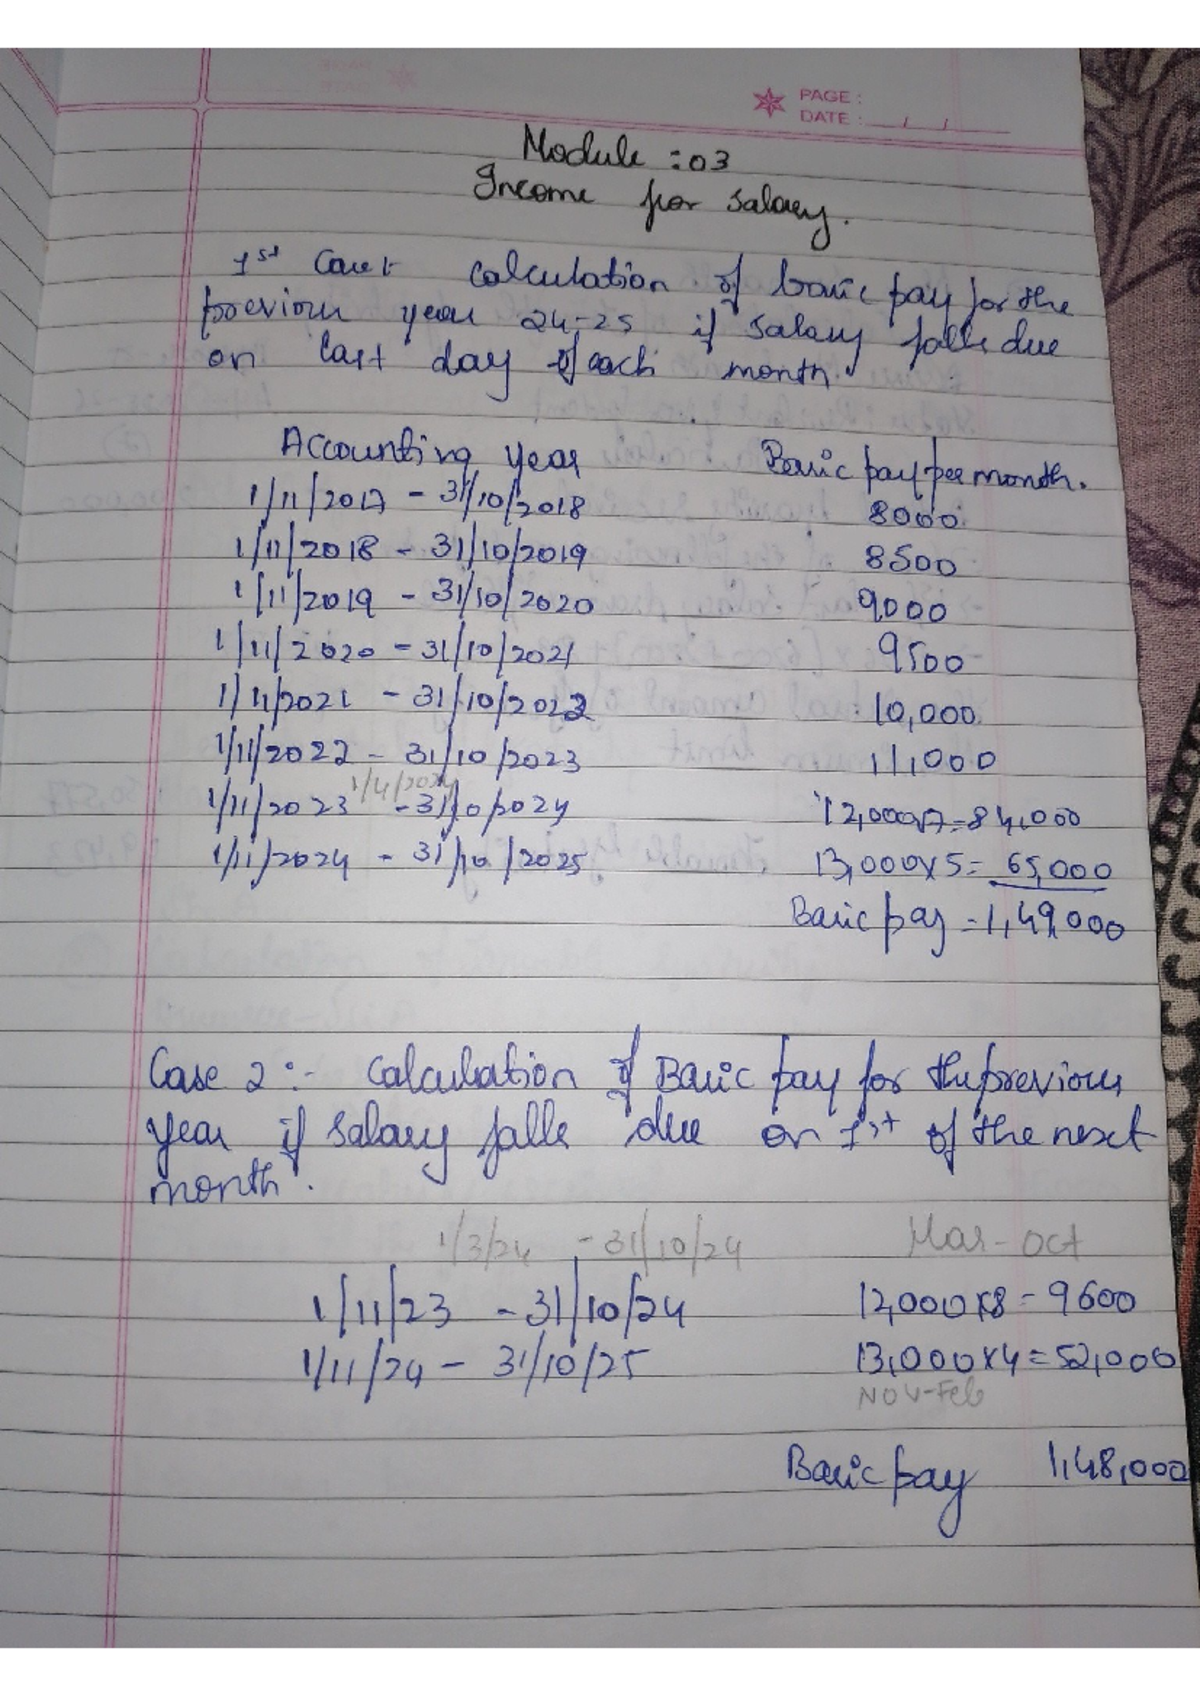 PAGE :
DATE : / /
Module : 03
Income for Salary.
1st Case:- Calculation of basic pay for the
previous year 24-25 if salary falls due
on last day of each month.
Accounting year Basic pay per month.
1/11/2017 - 31/10/2018 8000
1/11/2018 - 31/10/2019 8500
1/11/2019 - 31/10/2020 9000
1/11/2020 - 31/10/2021 9500
1/11/2021 - 31/10/2022 10,000
1/11/2022 - 31/10/2023 11,000
1/4/2024
1/11/2023 - 31/10/2024 12,000x7=84,000
1/11/2024 - 31/10/2025 13,000x5= 65,000
Basic pay =1,49,000
Case 2 :- Calculation of Basic pay for the previous
year if salary falls due on 1st of the next
month.
1/3/24 - 31/10/24 Mar - Oct
1/11/23 - 31/10/24 12,000x8 = 9600
1/11/24 - 31/10/25 13,000x4=52,000
Nov-Feb
Basic pay 1,48,000